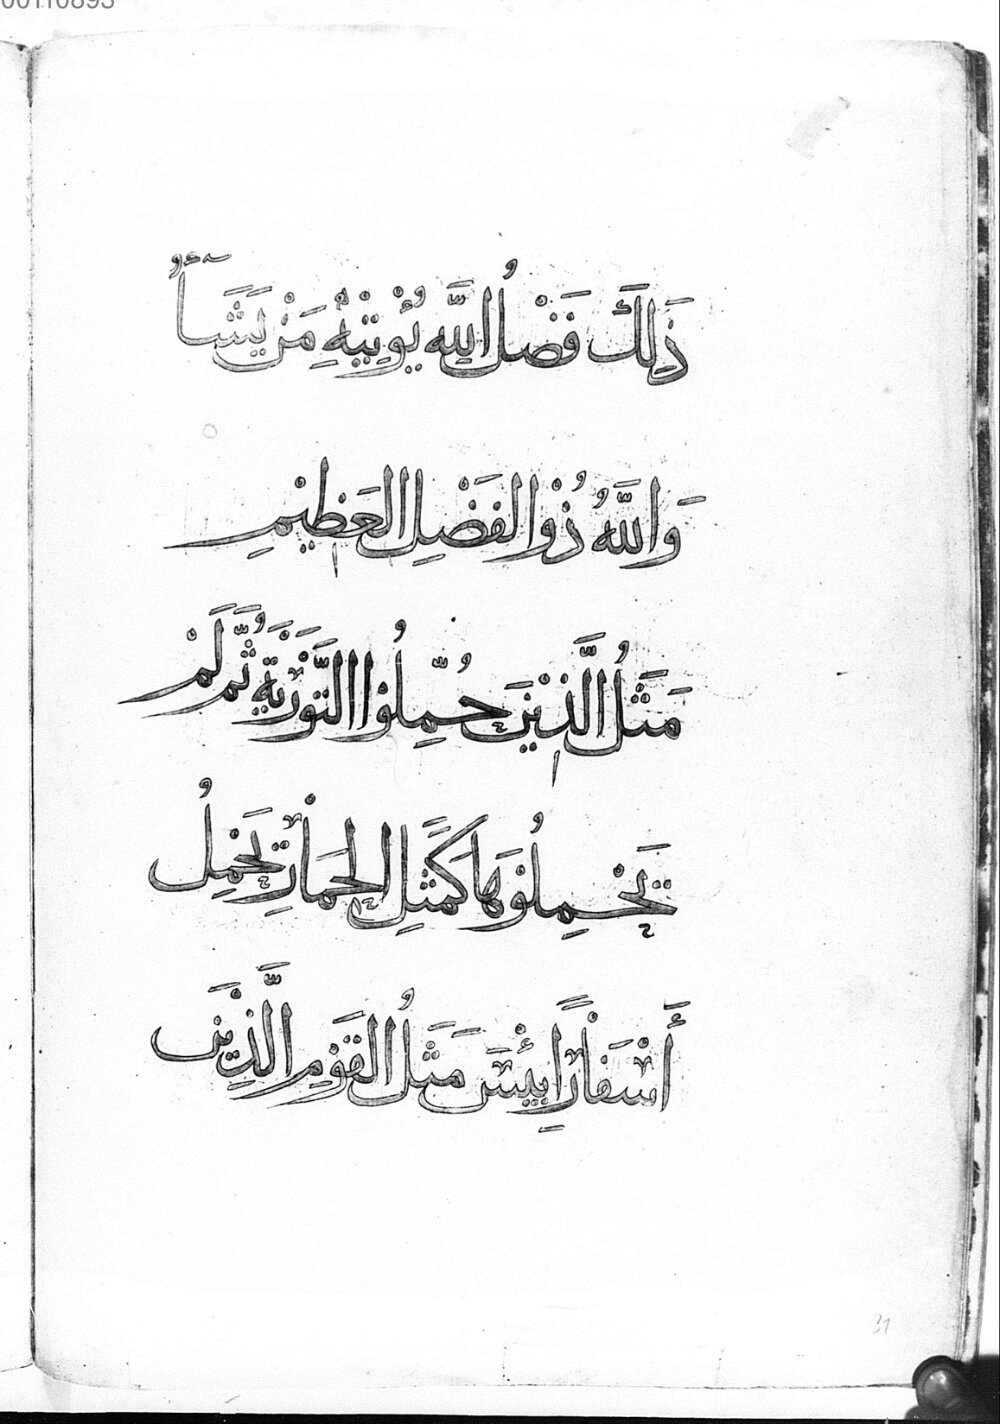 00110893
ذَلِكَ فَضْلُ اللَّهِ يُؤْتِيْهِ مَنْ يَشَآءُ
وَاللَّهُ ذُوْ الفَضْلِ العَظِيْمِ
مَثَلُ الَّذِيْنَ حُمِّلُوْا التَّوْرَيَةَ ثُمَّ لَمْ
يَحْمِلُوْهَا كَمَثَلِ الحِمَارِ يَحْمِلُ
أَسْفَارًا بِئْسَ مَثَلُ القَوْمِ الَّذِيْنَ
31